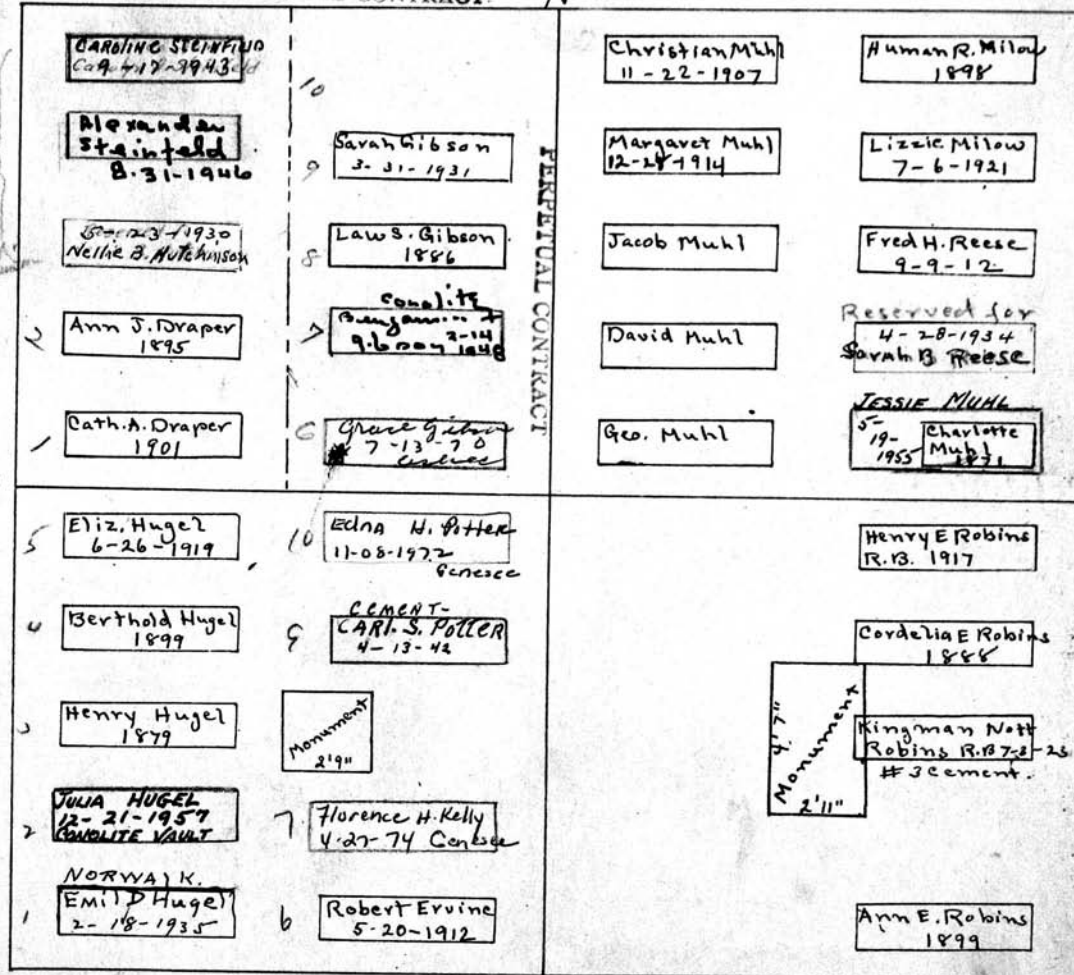 CONTRACT
CAROLINE STEINFIELD
Alexander
Steinfeld
8-31-1946
1930
Nellie B. Hutchinson
2
Ann J. Draper
1895
1
Cath. A. Draper
1901
10
9
Sarah Gibson
3-31-1931
8
Law S. Gibson
1886
7
conolite
2-14
1948
6
Grace Gibson
7-13-70
ashes
PERPETUAL CONTRACT
Christian Muhl
11-22-1907
Margaret Muhl
12-28-1914
Jacob Muhl
David Muhl
Geo. Muhl
Human R. Milow
1898
Lizzie Milow
7-6-1921
Fred H. Reese
9-9-12
Reserved for
4-28-1934
Sarah B Reese
JESSIE MUHL
5-
19-
1955
Charlotte
Muhl
1871
5
Eliz. Hugel
6-26-1919
4
Berthold Hugel
1899
3
Henry Hugel
1879
2
JULIA HUGEL
12-21-1957
CONOLITE VAULT
NORWALK.
1
Emil D Hugel
2-18-1935
10
Edna H. Potter
11-08-1972
Genesee
CEMENT-
9
CARL S. POTTER
4-13-42
Monument
2'9"
7
Florence H. Kelly
4-27-74 Genesee
6
Robert Ervine
5-20-1912
Henry E Robins
R.B. 1917
Cordelia E Robins
1888
4'7"
Monument
2'11"
Kingman Nott
Robins R.B 7-3-23
#3 cement.
Ann E. Robins
1899